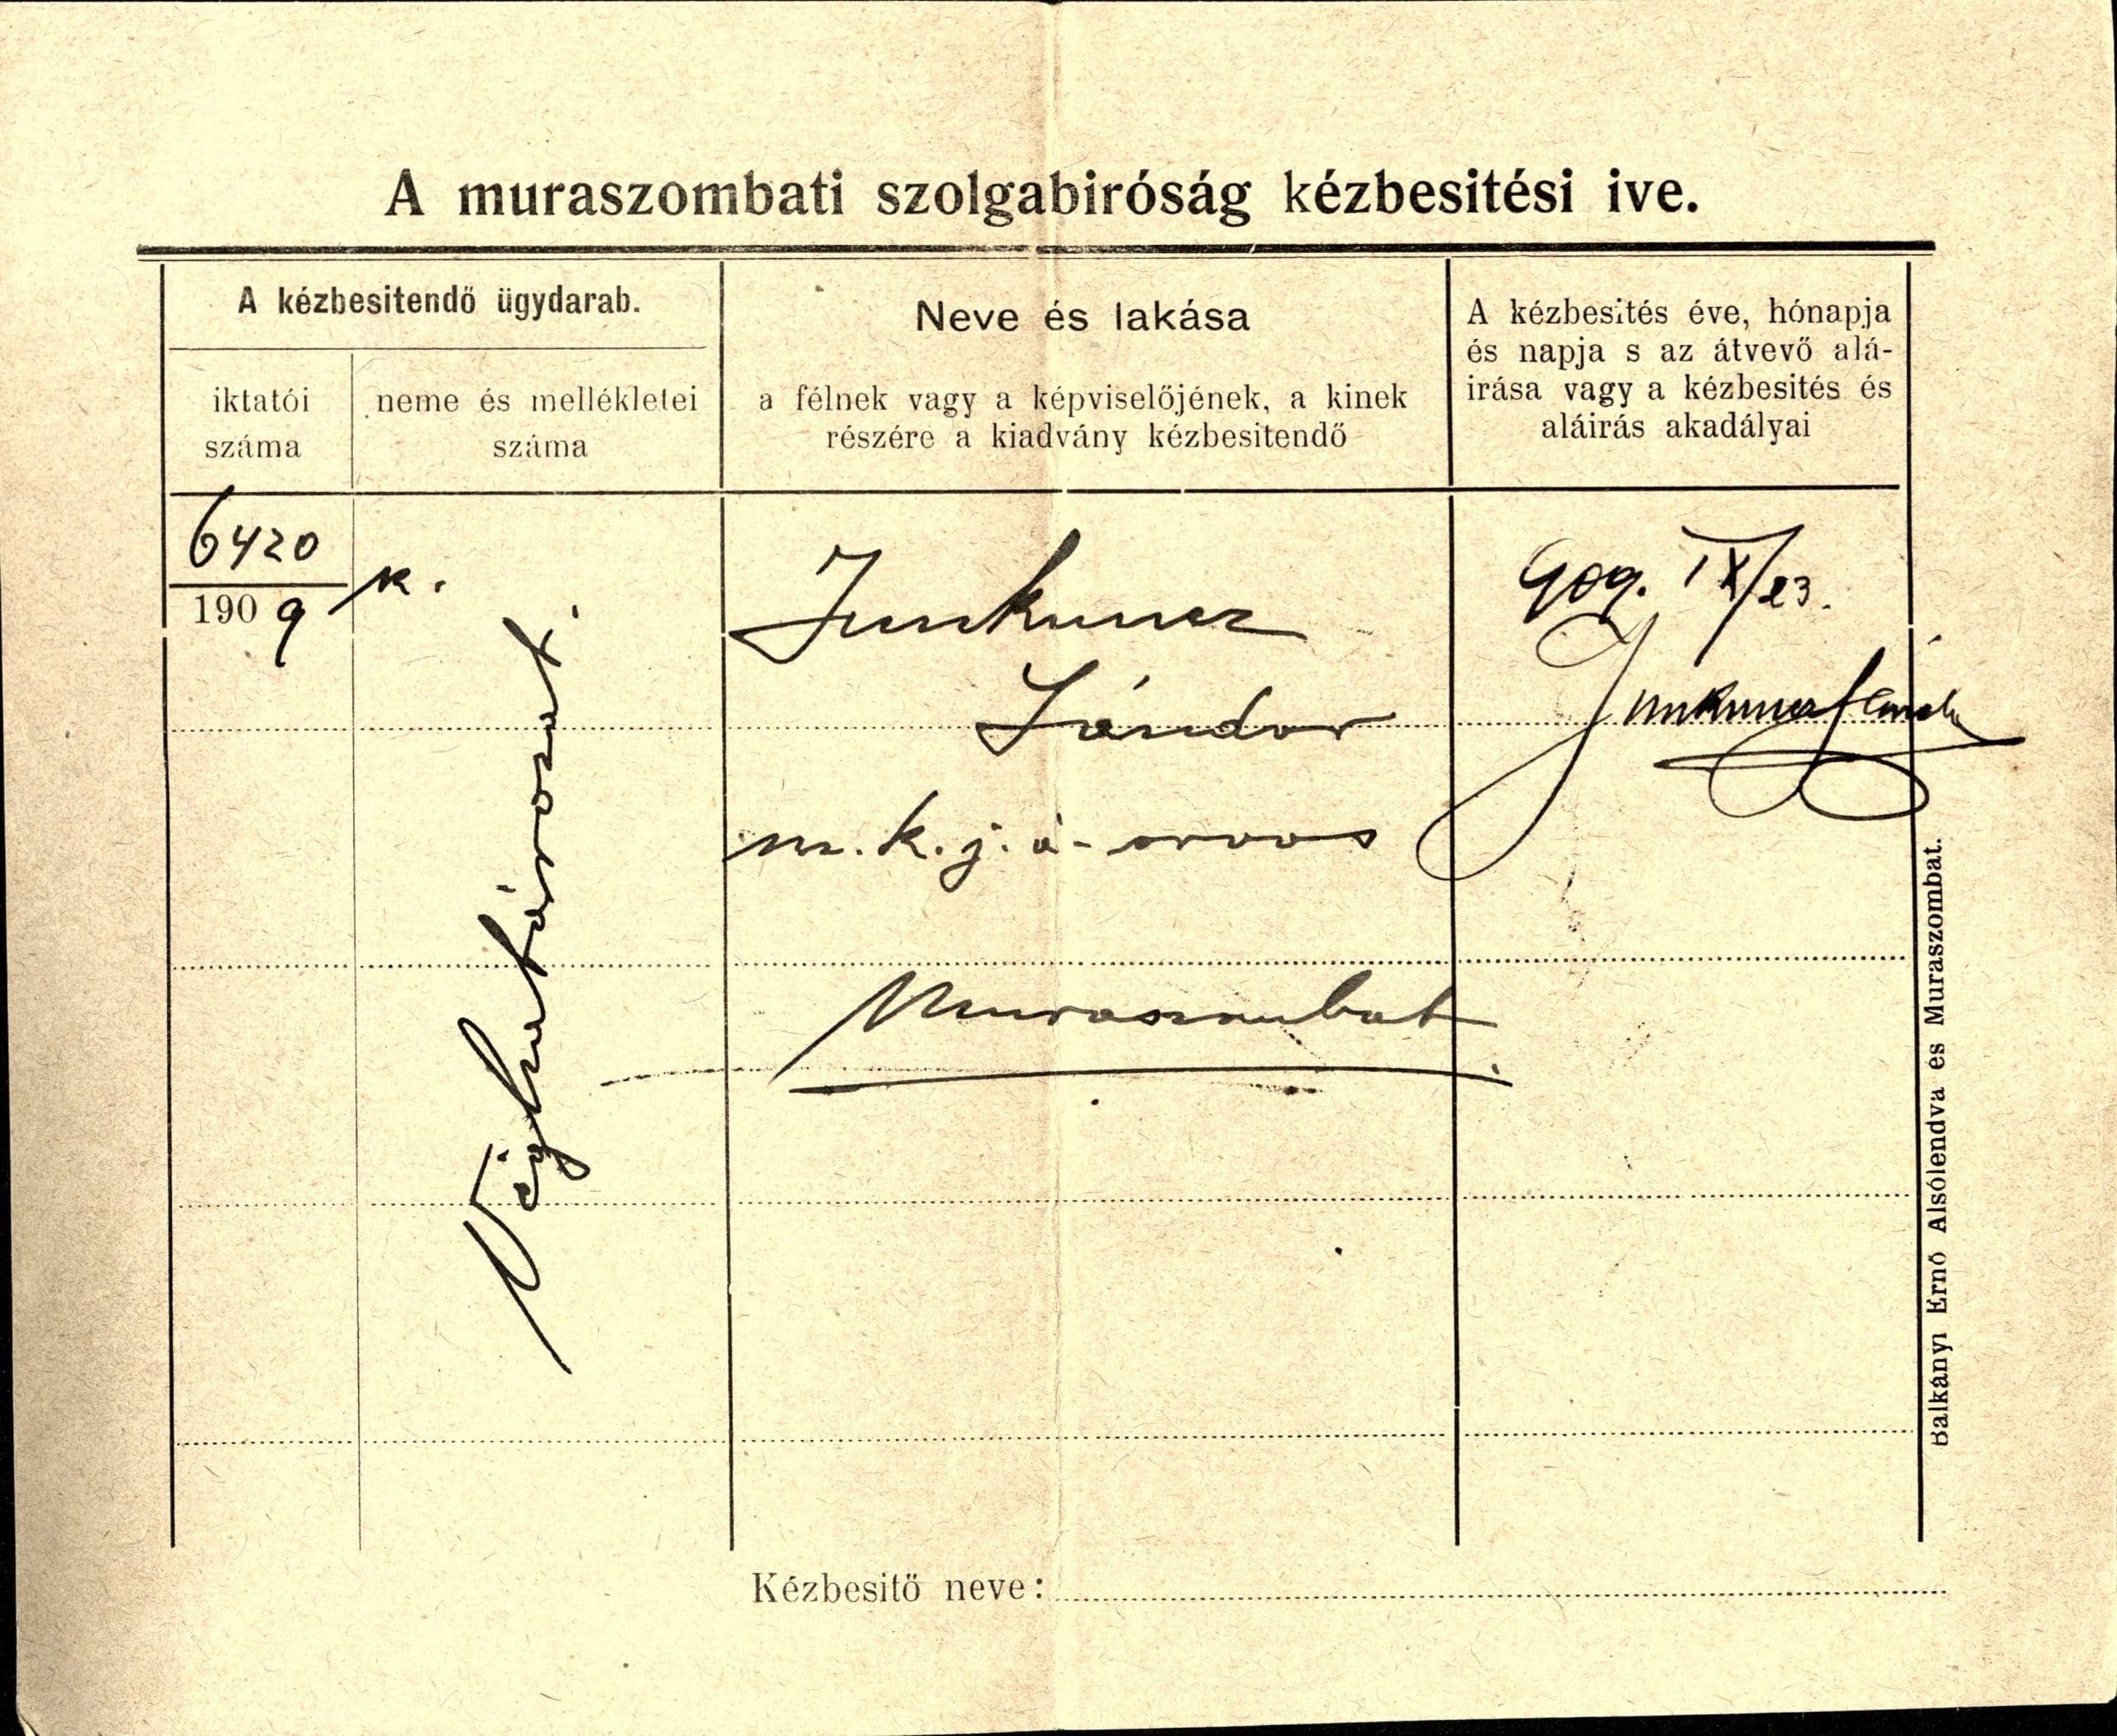 A muraszombati szolgabiróság kézbesitési ive.
A kézbesitendő ügydarab.
iktatói
száma
neme és mellékletei
száma
Neve és lakása
a félnek vagy a képviselőjének, a kinek
részére a kiadvány kézbesitendő
A kézbesités éve, hónapja
és napja s az átvevő alá-
irása vagy a kézbesités és
aláirás akadályai
6420
1909
k.
Véghatározat.
Junkuncz
Sándor
m. k. j. á-orvos
Muraszombat.
909. IX/23.
Junkuncz Sándor
Kézbesitő neve:
Balkányi Ernő Alsólendva és Muraszombat.